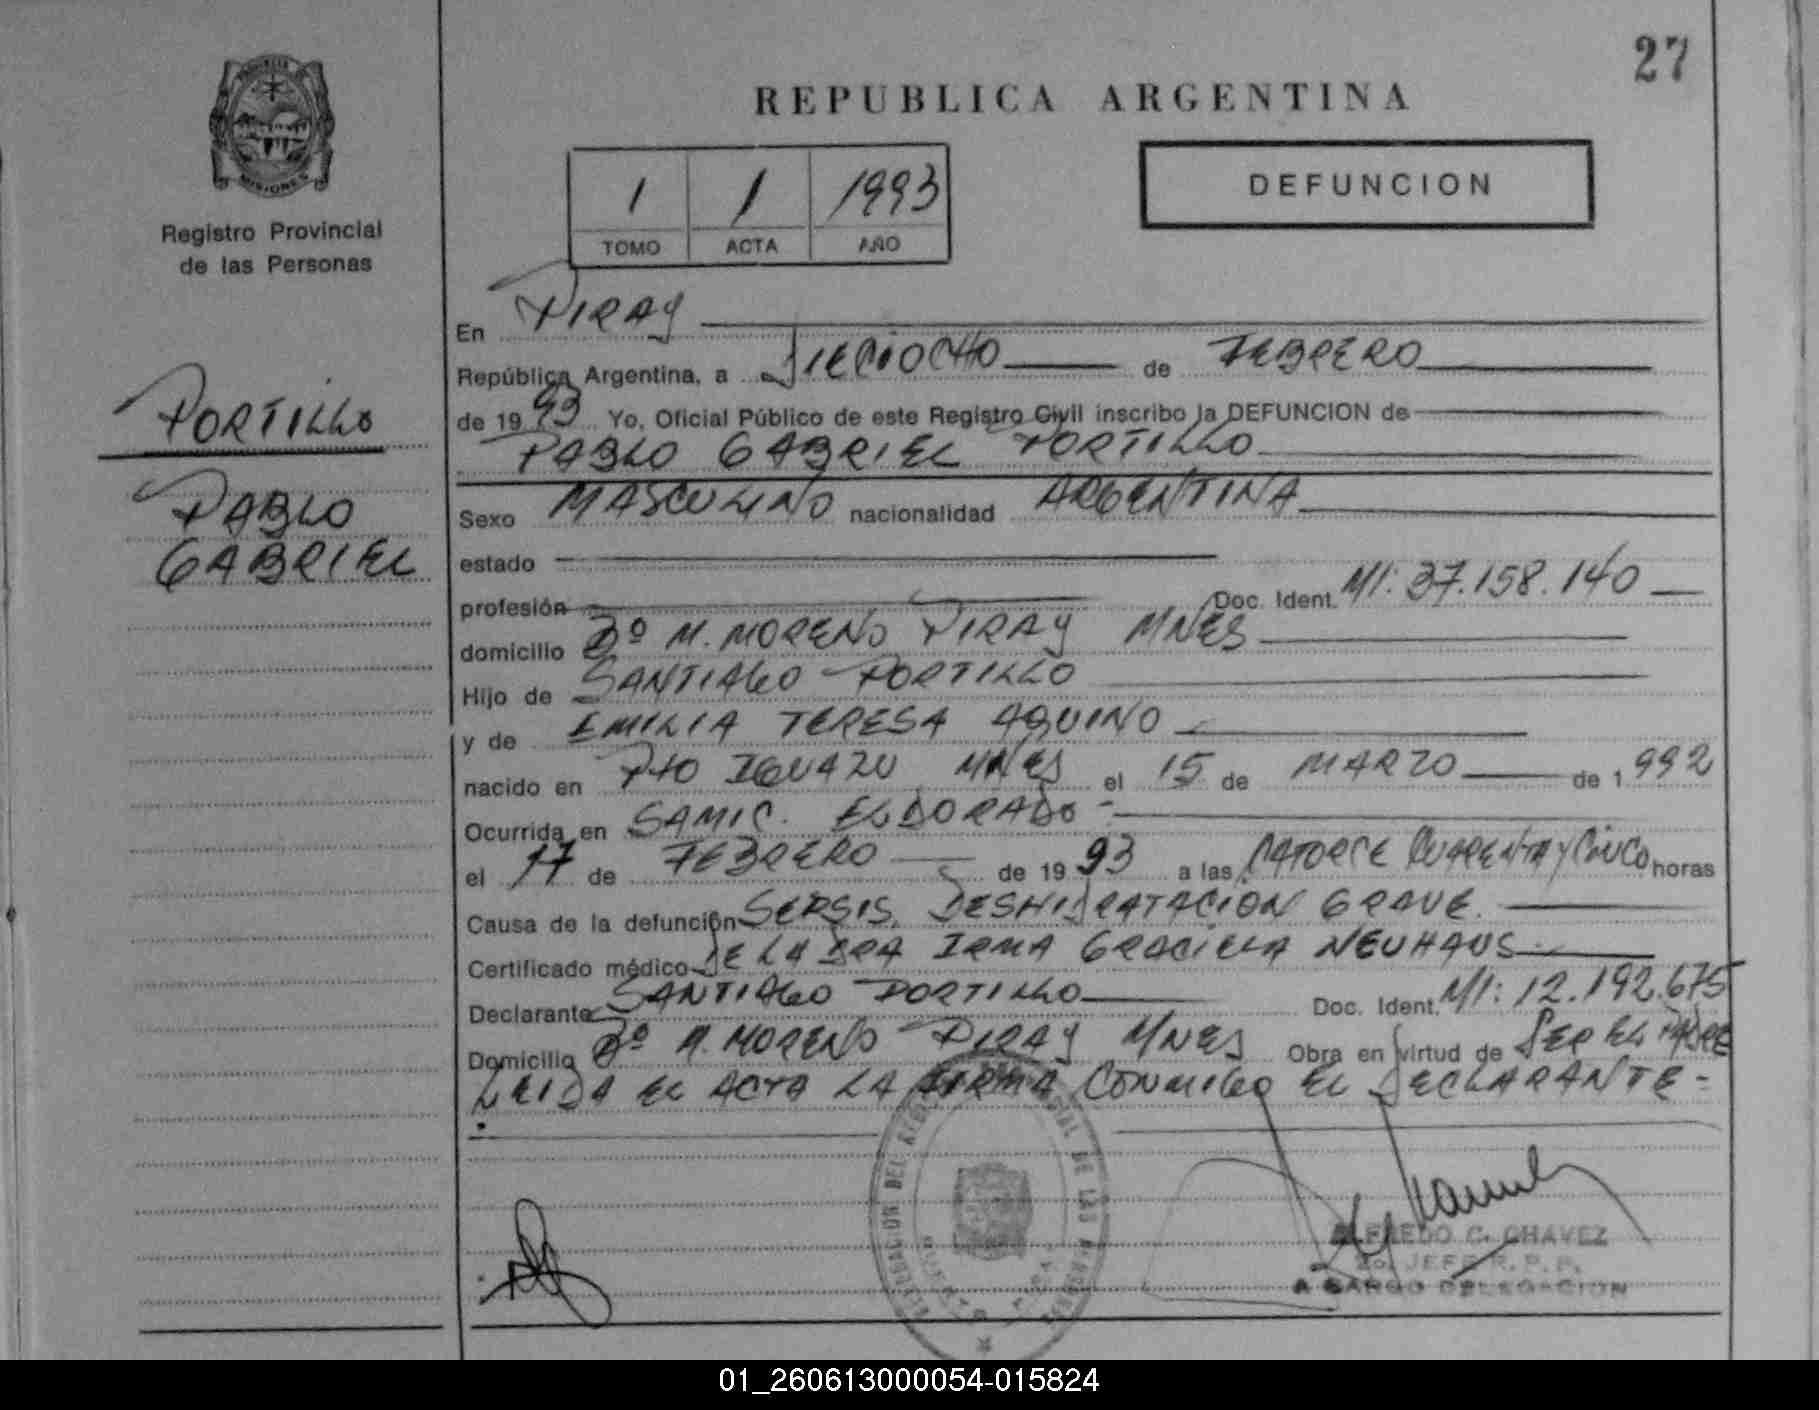 27
REPUBLICA ARGENTINA
PROVINCIA DE
MISIONES
Registro Provincial
de las Personas
1 1 1993
TOMO ACTA AÑO
DEFUNCION
PORTILLO
PABLO
GABRIEL
En PIRAY
República Argentina, a DIECIOCHO de FEBRERO
de 1993 Yo, Oficial Público de este Registro Civil inscribo la DEFUNCION de
PABLO GABRIEL PORTILLO
Sexo MASCULINO nacionalidad ARGENTINA
estado
profesión Doc. Ident. MI: 37.158.140
domicilio Bº M. MORENO PIRAY MNES
Hijo de SANTIAGO PORTILLO
y de EMILIA TERESA AQUINO
nacido en PTO IGUAZU MNES el 15 de MARZO de 1992
Ocurrida en SAMIC. ELDORADO
el 17 de FEBRERO de 1993 a las CATORCE CUARENTA Y CINCO horas
Causa de la defunción SEPSIS, DESHIDRATACION GRAVE.
Certificado médico DE LA DRA IRMA GRACIELA NEUHAUS
Declarante SANTIAGO PORTILLO Doc. Ident. MI: 12.192.675
Domicilio Bº M. MORENO PIRAY MNES Obra en virtud de SER EL PADRE
LEIDA EL ACTA LA FIRMA CONMIGO EL DECLARANTE-
ALFREDO C. CHAVEZ
2o. JEFE R. P. P.
A CARGO DELEGACION
01_260613000054-015824